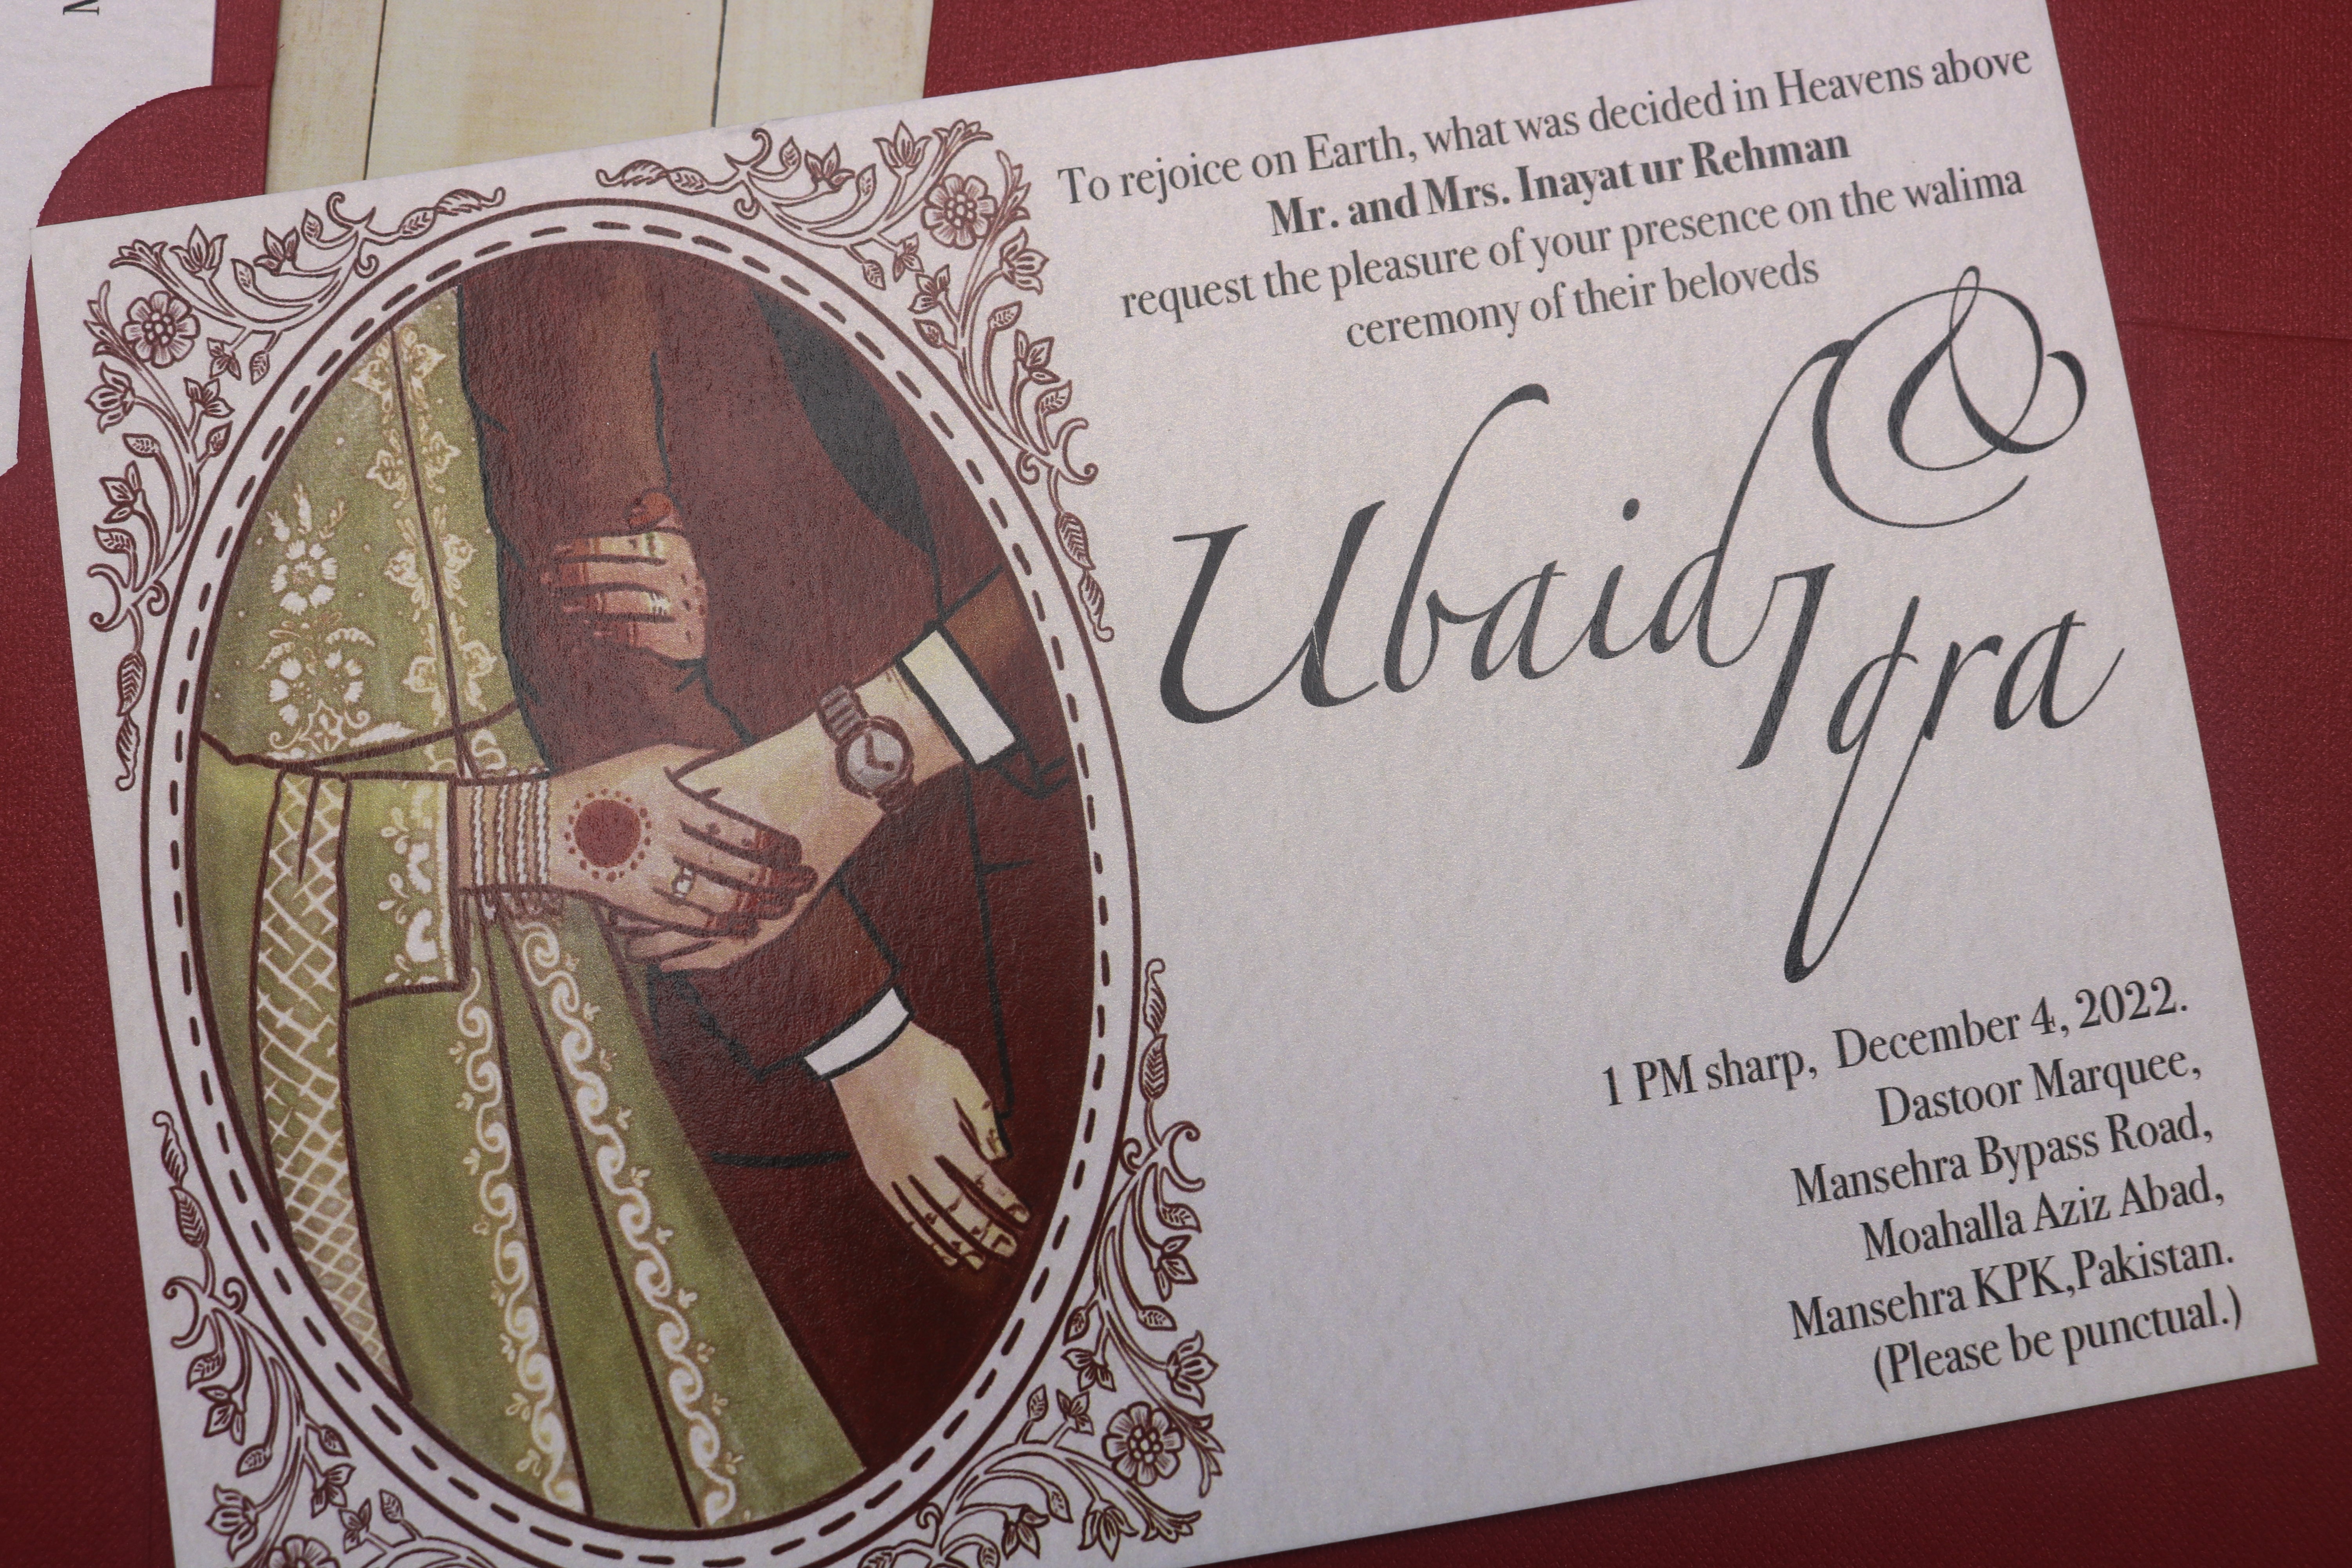 To rejoice on Earth, what was decided in Heavens above
Mr. and Mrs. Inayat ur Rehman
request the pleasure of your presence on the walima
ceremony of their beloveds
Ubaid &
Iqra
1 PM sharp, December 4, 2022.
Dastoor Marquee,
Mansehra Bypass Road,
Moahalla Aziz Abad,
Mansehra KPK,Pakistan.
(Please be punctual.)